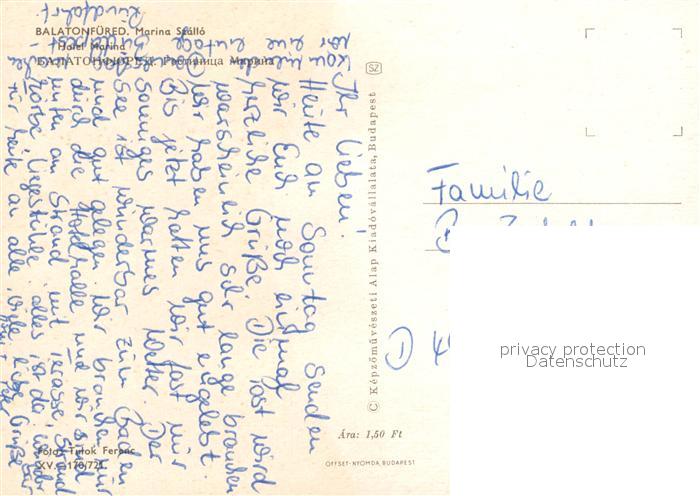 BALATONFÜRED. Marina Szálló
Hotel Marina
БАЛАТОНФЮРЕД. Гостиница Марина
Ihr Lieben!
Heute am Sonntag senden
wir Euch noch einmal
herzliche Grüße. Die Post wird
warscheinlich sehr lange brauchen
Wir haben uns gut eingelebt.
Bis jetzt hatten wir fast nur
sonniges warmes Wetter. Der
See ist wunderbar zum Baden
und gut gelegen. Wir brauchen nur
durch die Hotelhalle und wir sind
unten am Strand mit Terasse, Strand
körbe, Liegestühle, alles ist da.
für heute an alle viele liebe Grüße
Rundfahrt
Fotó: Tulok Ferenc
XV.—170/721
SZ
© Képzőművészeti Alap Kiadóvállalata, Budapest
Ára: 1,50 Ft
OFFSET-NYOMDA, BUDAPEST
Familie
D 4
privacy protection
Datenschutz